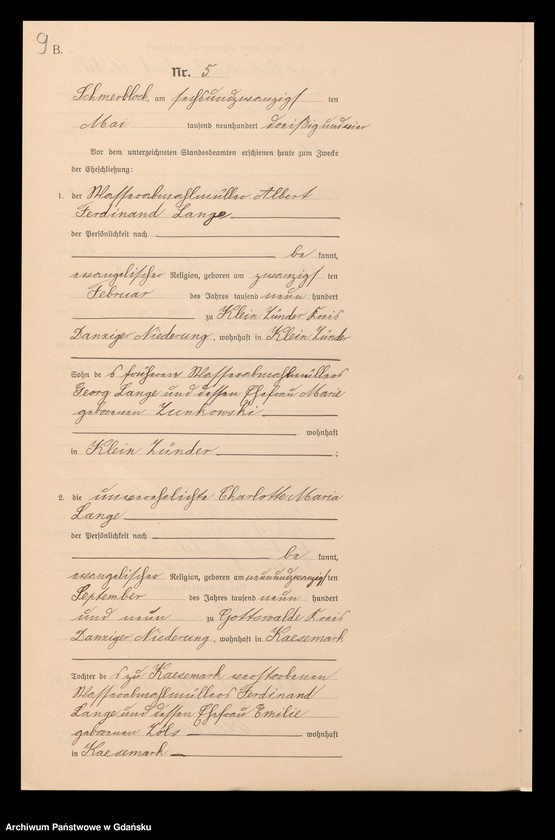 9 B.
Nr. 5
Schmerblock, am sechsundzwanzigsten
Mai tausend neunhundert dreißigundvier
Vor dem unterzeichneten Standesbeamten erschienen heute zum Zwecke
der Eheschließung:
1. der Wasserabmahlmüller Albert
Ferdinand Lange
der Persönlichkeit nach
be kannt,
evangelischer Religion, geboren am zwanzigsten
Februar des Jahres tausend neun hundert
zu Klein Zünder Kreis
Danziger Niederung, wohnhaft in Klein Zünder
Sohn des früheren Wasserabmahlmüllers
Georg Lange und dessen Ehefrau Marie
geborenen Zunkowski
wohnhaft
in Klein Zünder ;
2. die unverehelichte Charlotte Maria
Lange
der Persönlichkeit nach
be kannt,
evangelischer Religion, geboren am neunundzwanzigsten
September des Jahres tausend neun hundert
und neun zu Gottswalde Kreis
Danziger Niederung, wohnhaft in Kaesemark
Tochter des zu Kaesemark verstorbenen
Wasserabmahlmüllers Ferdinand
Lange und dessen Ehefrau Emilie
geborenen wohnhaft
in Kaesemark
Archiwum Państwowe w Gdańsku